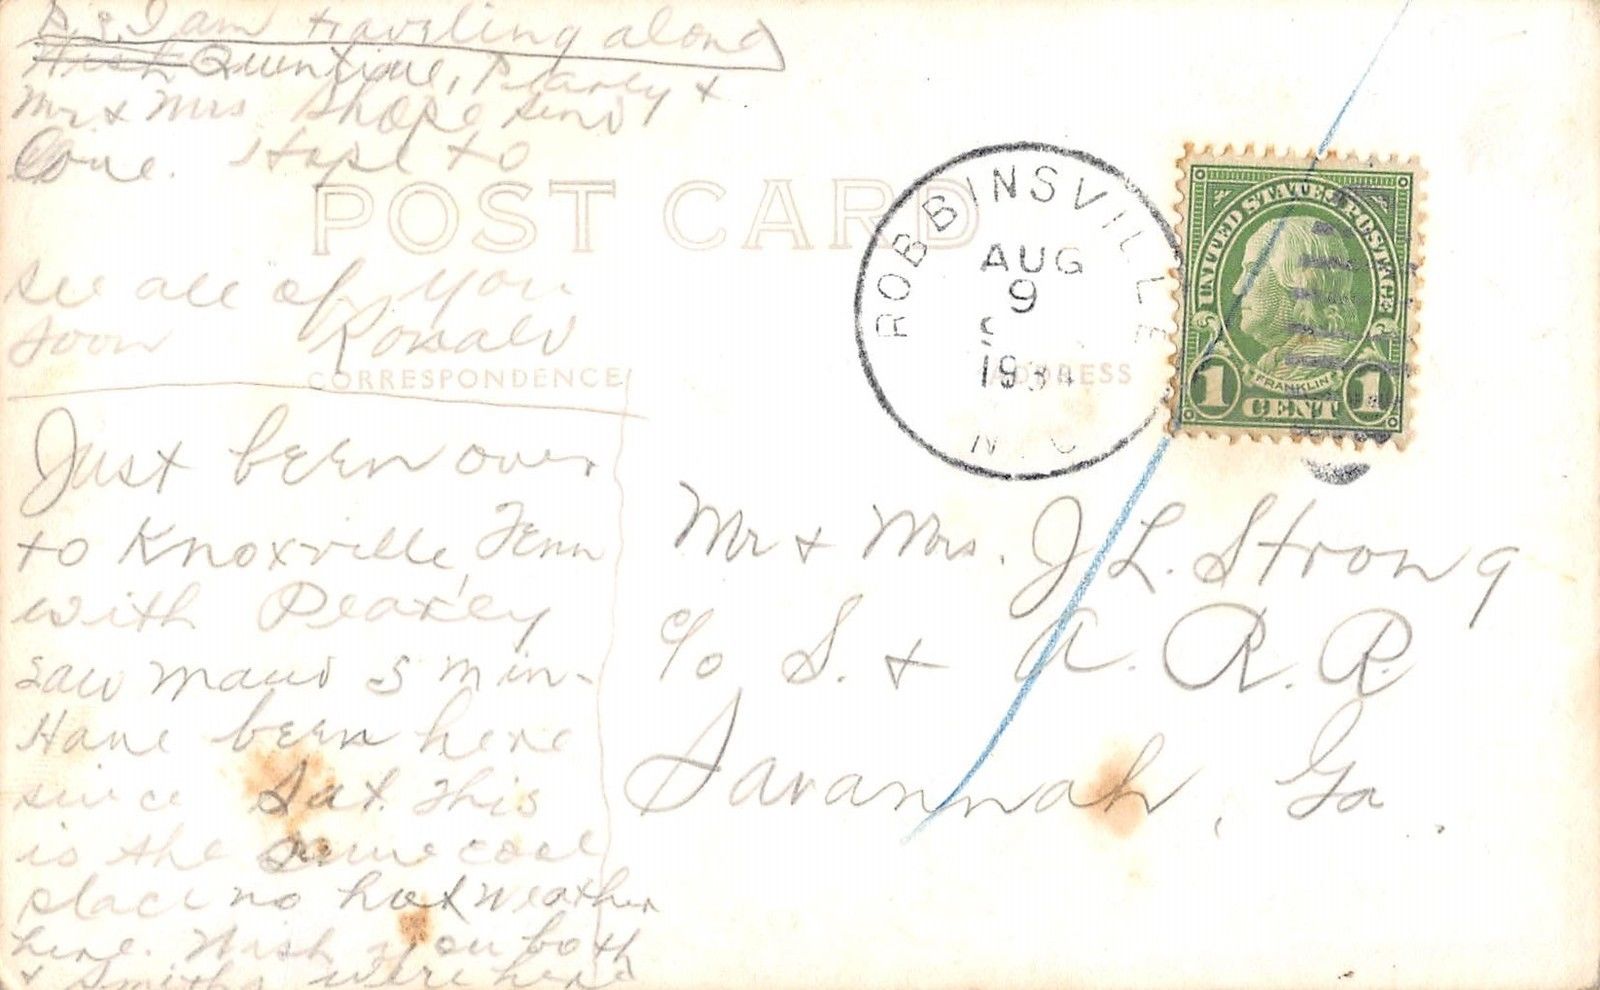 P.S. I am traveling alone
Wish Quentine, Pearley +
Mr + Mrs Shope send
Love. Hope to
POST CARD
see all of you
soon Ronald
CORRESPONDENCE
ADDRESS
Just been over
to Knoxville, Tenn
with Pearley
saw Maud 5 min-
Have been here
since Sat. This
is the same cool
place no hot weather
here. Wish you both
+ Smiths were here
ROBBINSVILLE
AUG
9
193
N.C
UNITED STATES POSTAGE
FRANKLIN
1 CENT 1
Mr + Mrs. J. L. Strong
c/o S. + A. R. R.
Savannah, Ga.